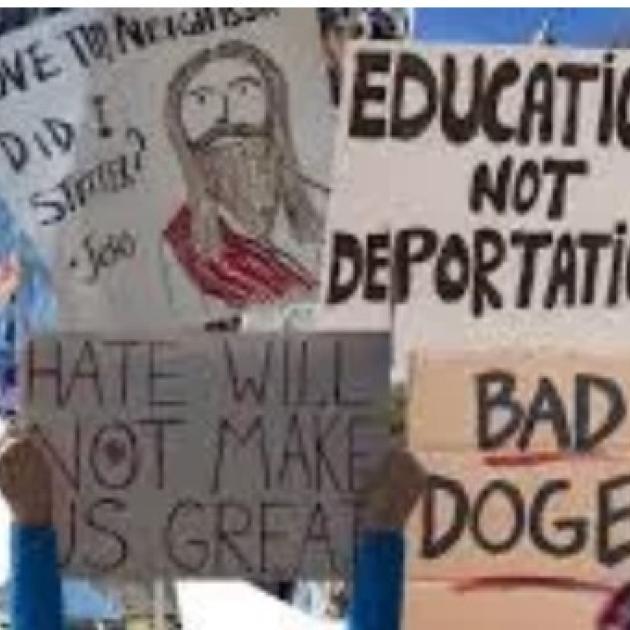 OVE THY NEIGHBOR
DID I
STUTTER?
EDUCATIO
NOT
DEPORTATIO
HATE WILL
NOT MAKE
US GREAT
BAD
DOGE